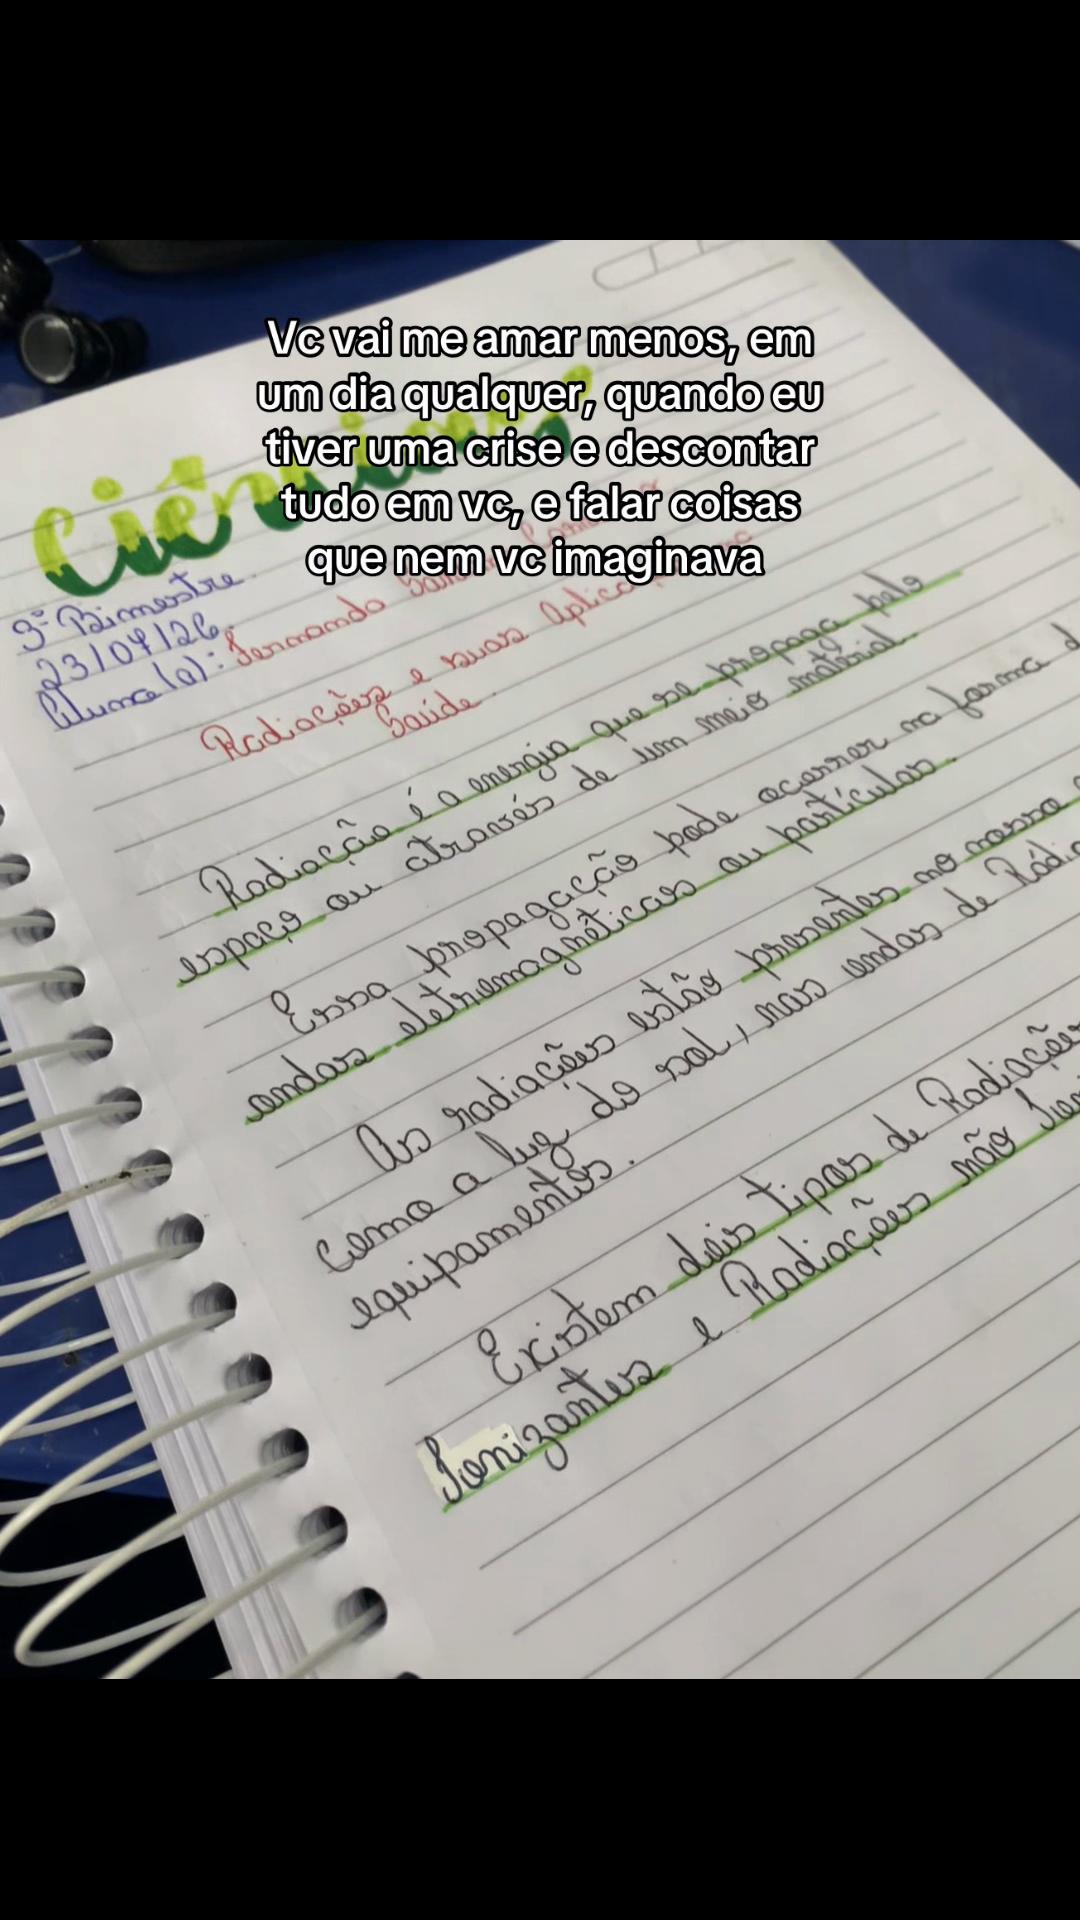 Vc vai me amar menos, em
um dia qualquer, quando eu
tiver uma crise e descontar
tudo em vc, e falar coisas
que nem vc imaginava
Ciências
3º Bimestre
23/07/26
Aluno(a): Fernanda
Radiações e suas Aplicações na
Saúde
Radiação é a energia que se propaga pelo
espaço ou através de um meio matérial.
Essa propagacção pode ocorrer na forma d
ondas eletromagnéticas ou partículas.
As radiações estão presentes no nosso
como a luz do sol, nas ondas de Rádi
equipamentos.
Existem dois tipos de Radiações
Ionizantes e Radiações não Ion